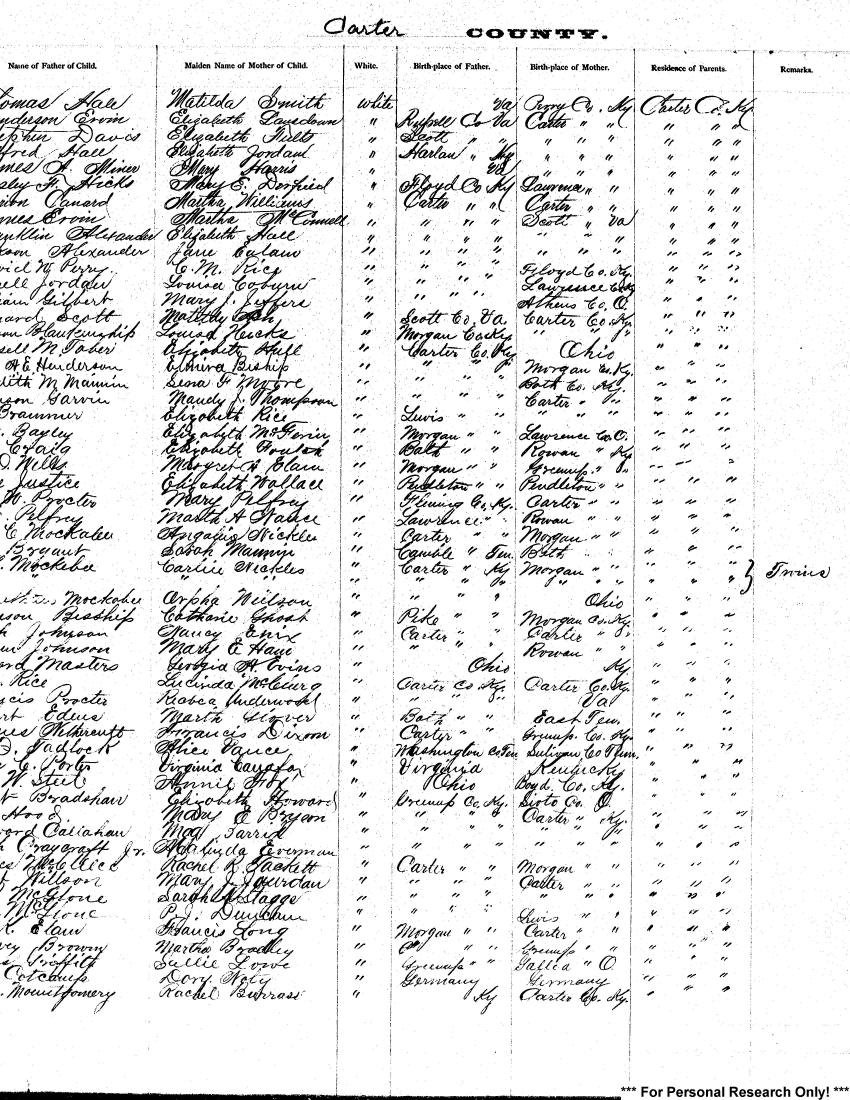 Carter COUNTY.
Name of Father of Child. Maiden Name of Mother of Child. White. Birth-place of Father. Birth-place of Mother. Residence of Parents. Remarks.
omas Hale Matilda Smith white Va Perry Co. Ky Carter Co. Ky
nderson Ervin Elizabeth Lansdown " Russell Co Va Carter " " " " "
Davis Elizabeth " Scott " " " " " " " "
fred Hall Elizabeth Jordan " Harlan " Ky " " " " " "
mes A. Miner Mary Harris " Va " " " " " "
sley F. Hicks Mary E. " Floyd Co Ky Lawrence " " " " "
Canard Martha Williams " Carter " " Carter " " " " "
mes Ervin Martha McConnell " " " " Scott " Va " " "
nklin Alexander Elizabeth Hall " " " " " " " " " "
son Alexander Jane " " " " " " " " " "
vid W. Perry C. M. Rice " " " " Floyd Co. Ky. " " "
ell Jordan Louisa Coburn " " " " Lawrence Co Ky " " "
iam Gilbert Mary J. " " " " Athens Co. O. " " "
Scott " Scott Co. Va. Carter Co. Ky. " " "
Blankenship Louisa Hicks " Morgan Co Ky " " " " " "
sell M Taber Elizabeth " Carter Co. Ky Ohio " " "
A E Henderson Elmira Biship " " " " Morgan Co. Ky. " " "
dith M. Mannin F Moore " " " " Bath Co. Ky. " " "
son Garvin Mandy J. Thompson " " " " Carter " " " " "
Brammer Elizabeth Rice " Lewis " " " " " " " "
. Bayley Elizabeth " Morgan " " Lawrence Co. O. " " "
Craig Elizabeth " Bath " " Rowan " Ky " " "
D. Wells Margret A Elam " Morgan " " Greenup " " " " "
Justice Elizabeth Wallace " Pendleton " " Pendleton " " " " "
W. Procter Mary Pelfrey " Fleming Co. Ky. Carter " " " " "
Pelfrey Marth A Nance " Lawrence " " Rowan " " " " "
C Mockabee Nickles " Carter " " Morgan " " " " "
Bryant Sarah Mannin " Camble " Ten. Bath " " " " "
. Mockebee Carline Nickles " Carter " Ky Morgan " " " " " } Twins
" " " " " " " " " " " " "
Mockabee Orpha Wilson " " " " Ohio " " "
son Bisship Catharine " Pike " " Morgan Co. Ky. " " "
h Johnson Nancy Enix " Carter " " Carter " " " " "
Johnson Mary E " " " " Rowan " " " " "
rd Masters Georgia A Evins " Ohio Ky " " "
. Rice Lucinda McClurg " Carter Co. Ky. Carter Co. Ky. " " "
cis Procter Underwood " " " " Va " " "
rt Edens Marth " Bath " " East Ten. " " "
es Francis Dixon " Carter " " Greenup. Co. Ky. " " "
D. Tadlock Alice Vance " Washington Co Ten Sulivan Co Tenn. " " "
C. Porter Virginia " Virginia Kentucky " " "
W. Steel Annie Fox " Ohio Boyd. Co. Ky. " " "
t Bradshaw Elizabeth Howard " Greenup Co. Ky. Sioto Co. O. " " "
Hood. Mary E Bryan " " " " Carter " Ky. " " "
ord Callahan " " " " " " " " " "
Craycraft Jr. Malinda Everman " " " " " " " " " "
Rachel R Tackett " Carter " " Morgan " " " " "
t Willson Mary J Jourdan " " " " Carter " " " " "
McGlone Sarah A Staggs " " " " " " " " " "
McGlone P. J. Duncan " " " " Lewis " " " " "
Elam Francis Long " Morgan " " Carter " " " " "
vey Brown Martha Bradley " " " Greenup " " " " "
Sallie Lowe " Greenup " " Gallia " O. " " "
Dory " Germany Germany " " "
. Mountgomery Rachel Burrass " Ky Carter Co. Ky. " " "
*** For Personal Research Only! ***